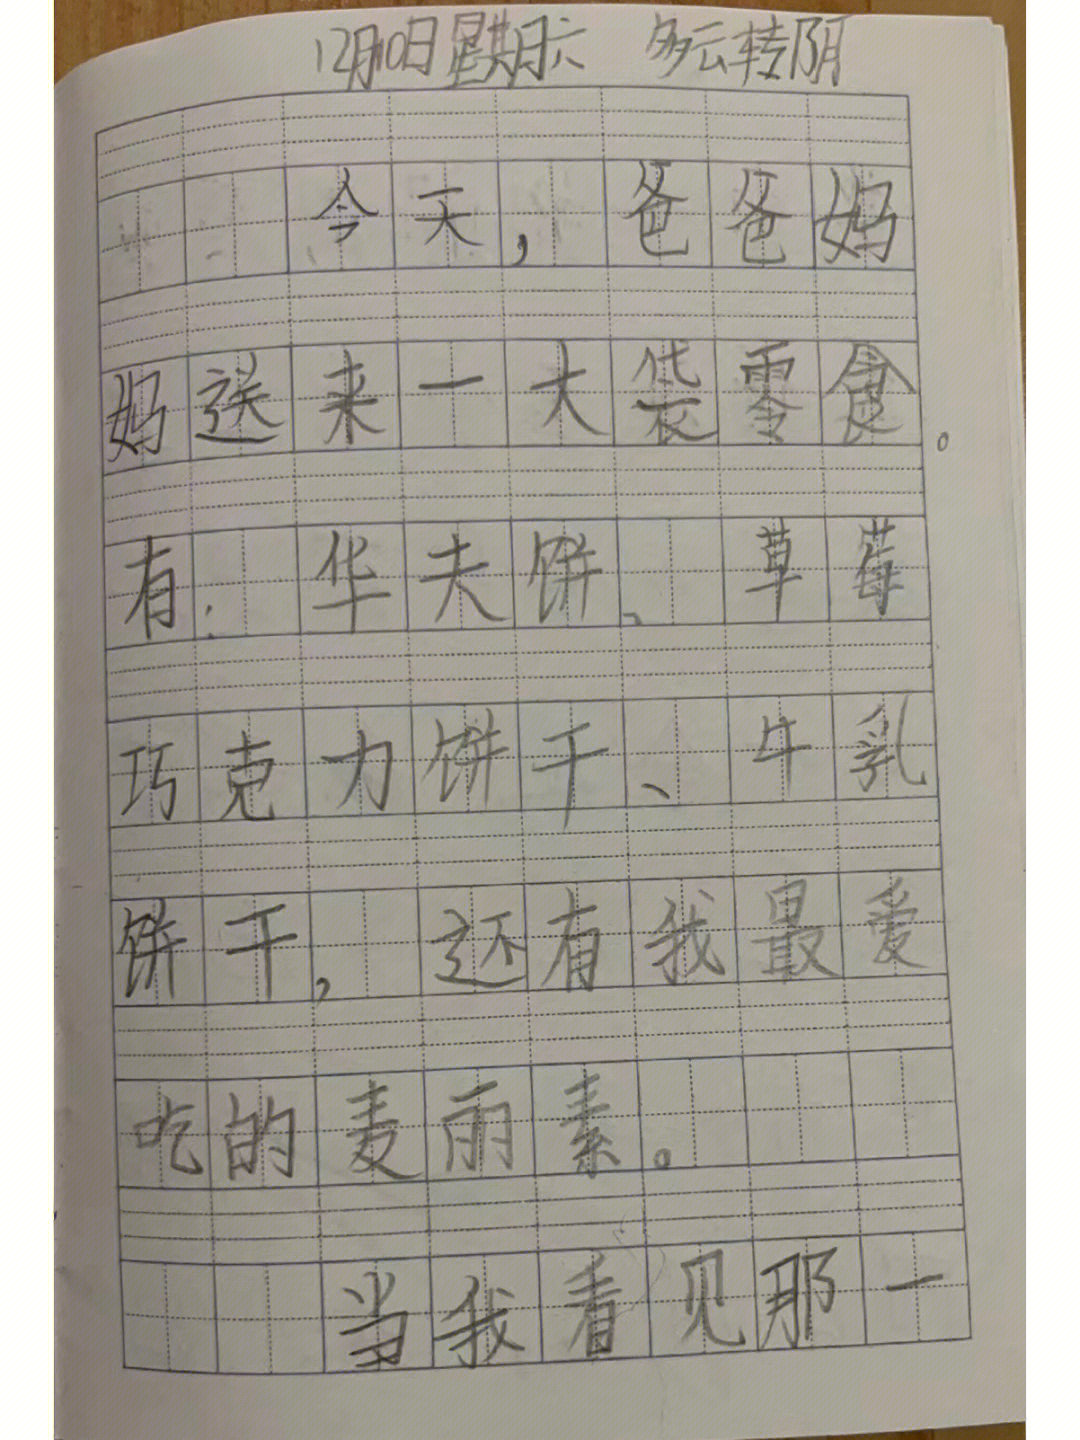 12月10日星期六 多云转阴
今天,爸爸妈
妈送来一大袋零食。
有:华夫饼、草莓
巧克力饼干、牛乳
饼干,还有我最爱
吃的麦丽素。
当我看见那一